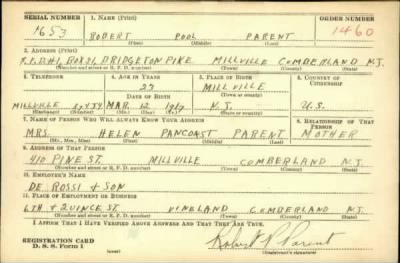 SERIAL NUMBER 1. NAME (Print) ORDER NUMBER
1653 ROBERT POOL PARENT 1460
(First) (Middle) (Last)
2. ADDRESS (Print)
R.F.D. #1, BOX 31, BRIDGETON PIKE MILLVILLE CUMBERLAND N.J.
(Number and street or R. F. D. number) (Town) (County) (State)
3. TELEPHONE 4. AGE IN YEARS 5. PLACE OF BIRTH 6. COUNTRY OF CITIZENSHIP
23 MILLVILLE
DATE OF BIRTH (Town or county)
MILLVILLE MAR. 12 1917 N.J. U.S.
(Exchange) (Number) (Mo.) (Day) (Yr.) (State or country)
7. NAME OF PERSON WHO WILL ALWAYS KNOW YOUR ADDRESS 8. RELATIONSHIP OF THAT PERSON
MRS. HELEN PANCOAST PARENT MOTHER
(Mr., Mrs., Miss) (First) (Middle) (Last)
9. ADDRESS OF THAT PERSON
410 PINE ST. MILLVILLE CUMBERLAND N.J.
(Number and street or R. F. D. number) (Town) (County) (State)
10. EMPLOYER'S NAME
DE ROSSI & SON
11. PLACE OF EMPLOYMENT OR BUSINESS
6TH & QUINCE ST. VINELAND CUMBERLAND N.J.
(Number and street or R. F. D. number) (Town) (County) (State)
I AFFIRM THAT I HAVE VERIFIED ABOVE ANSWERS AND THAT THEY ARE TRUE.
REGISTRATION CARD
D. S. S. Form 1
Robert P. Parent
(Registrant's signature)